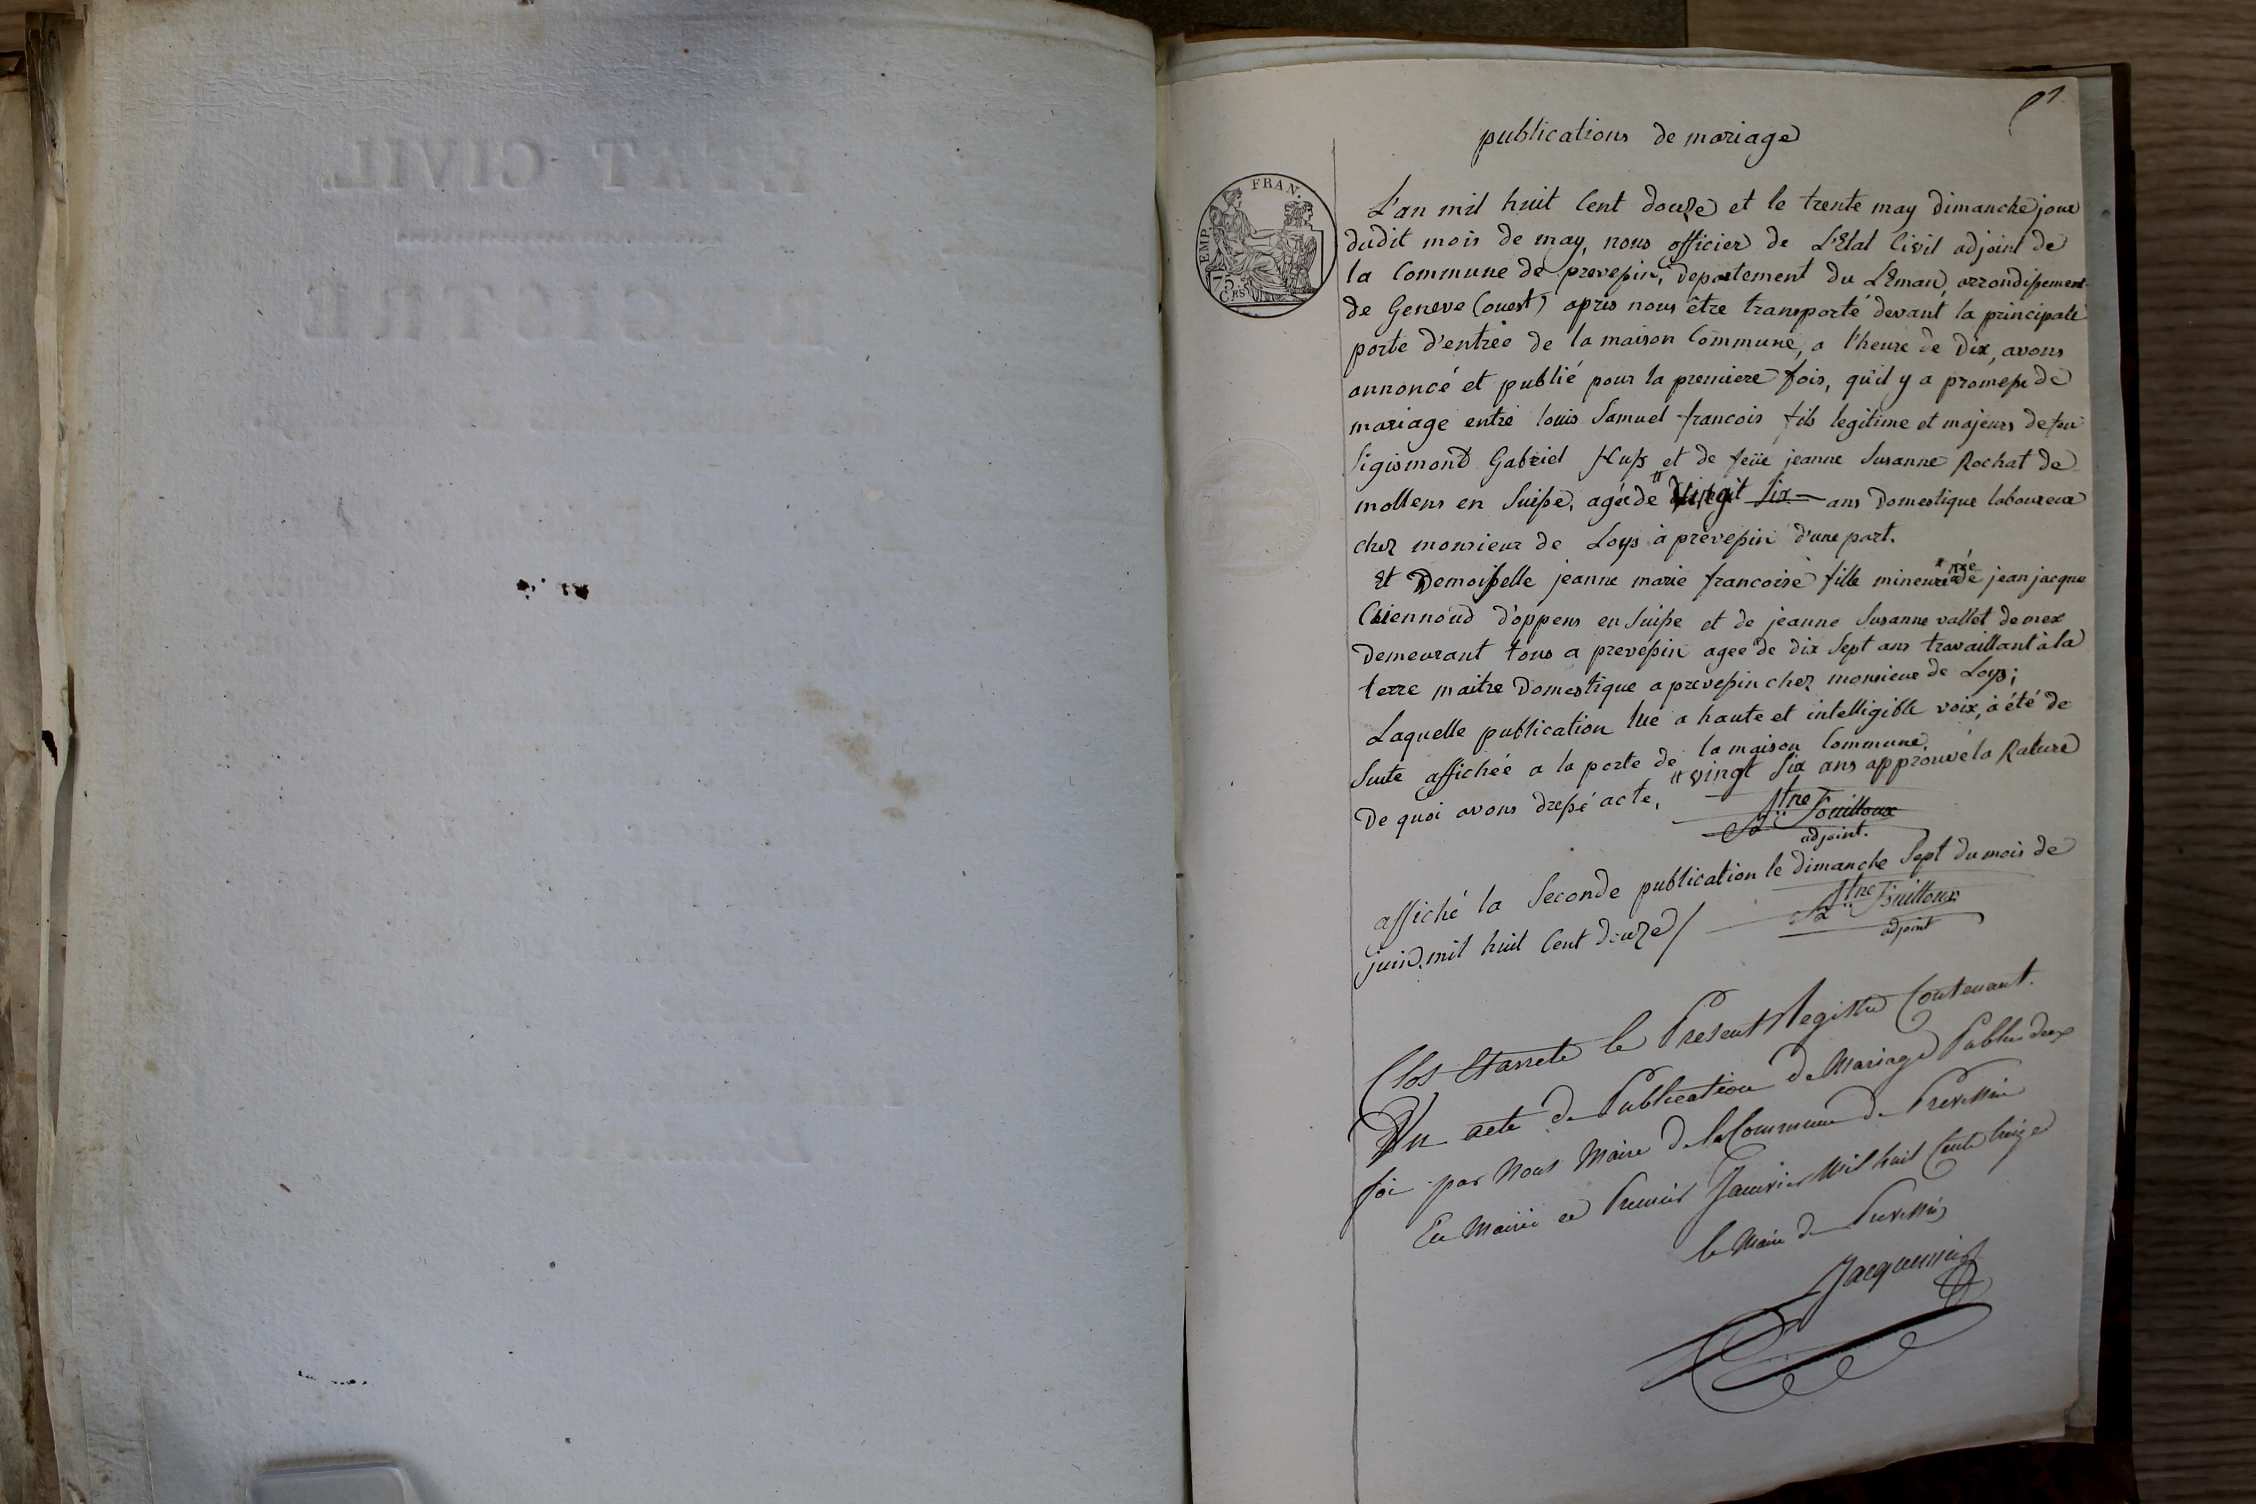 ETAT CIVIL
REGISTRE
publications de mariage
EMP. FRAN.
75
CES
L'an mil huit Cent douze et le trente may dimanche jour
dudit mois de may, nous officier de L'Etat Civil adjoint de
la Commune de prevessin, Departement du Léman, arrondissement
de Geneve (ouest) apres nous être transporté devant la principale
porte d'entrée de la maison Commune, a l'heure de Dix, avons
annoncé et publié pour la premiere fois, qu'il y a promesse de
mariage entre louis Samuel francois fils legitime et majeurs de feu
Sigismond Gabriel Huss et de feüe jeanne Susanne Rochat de
mollens en Suisse, agée de " vingt Six ans Domestique laboureur
chez monsieur de Loys à prevessin d'une part.
Et Demoisselle jeanne marie francoise fille mineure née de jean jacque
d'oppens en Suisse et de jeanne Susanne vallet de mex
Demeurant tous a prevessin agee de dix Sept ans travaillant à la
terre maitre Domestique a prevessin chez monsieur de Loys;
Laquelle publication lue a haute et intelligible voix, à été de
Suite affichée a la porte de la maison Commune.
De quoi avons dressé acte, " vingt Six ans approuvé la Rature
Fouilloux
adjoint.
affiché la Seconde publication le dimanche Sept du mois de
juin mil huit Cent douze /
Fouilloux
adjoint
Clos Et arreté le Present Registre Contenant.
Un acte de Publication de Mariage Publié deux
foi par Nous Maire De la Commune de Prevessin
En Mairie ce Premier Janvier Mil huit Cent treize
le Maire de Prevessin
Jacquemier